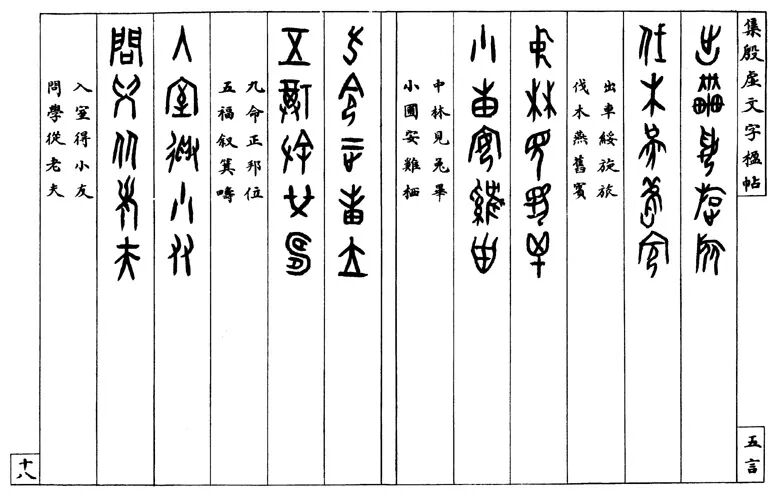 集殷虛文字楹帖
五言
出車綏旋旅
伐木燕舊賓
中林見兔畢
小圃安雞栖
九命正邦位
五福叙箕嚋
入室得小友
問學從老夫
十八